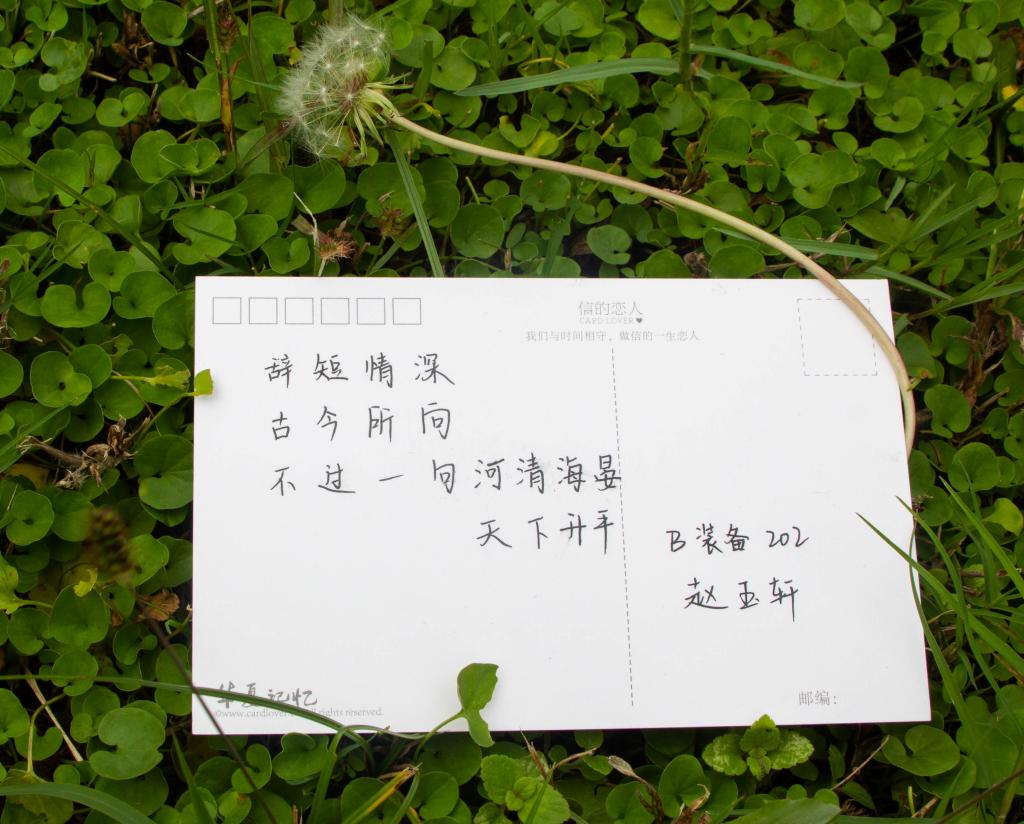 信的恋人
CARD LOVER♥
我们与时间相守，做信的一生恋人
辞短情深
古今所向
不过一句河清海晏
天下升平
B装备202
赵玉轩
华夏记忆
©www.cardlover. all rights reserved.
邮编：